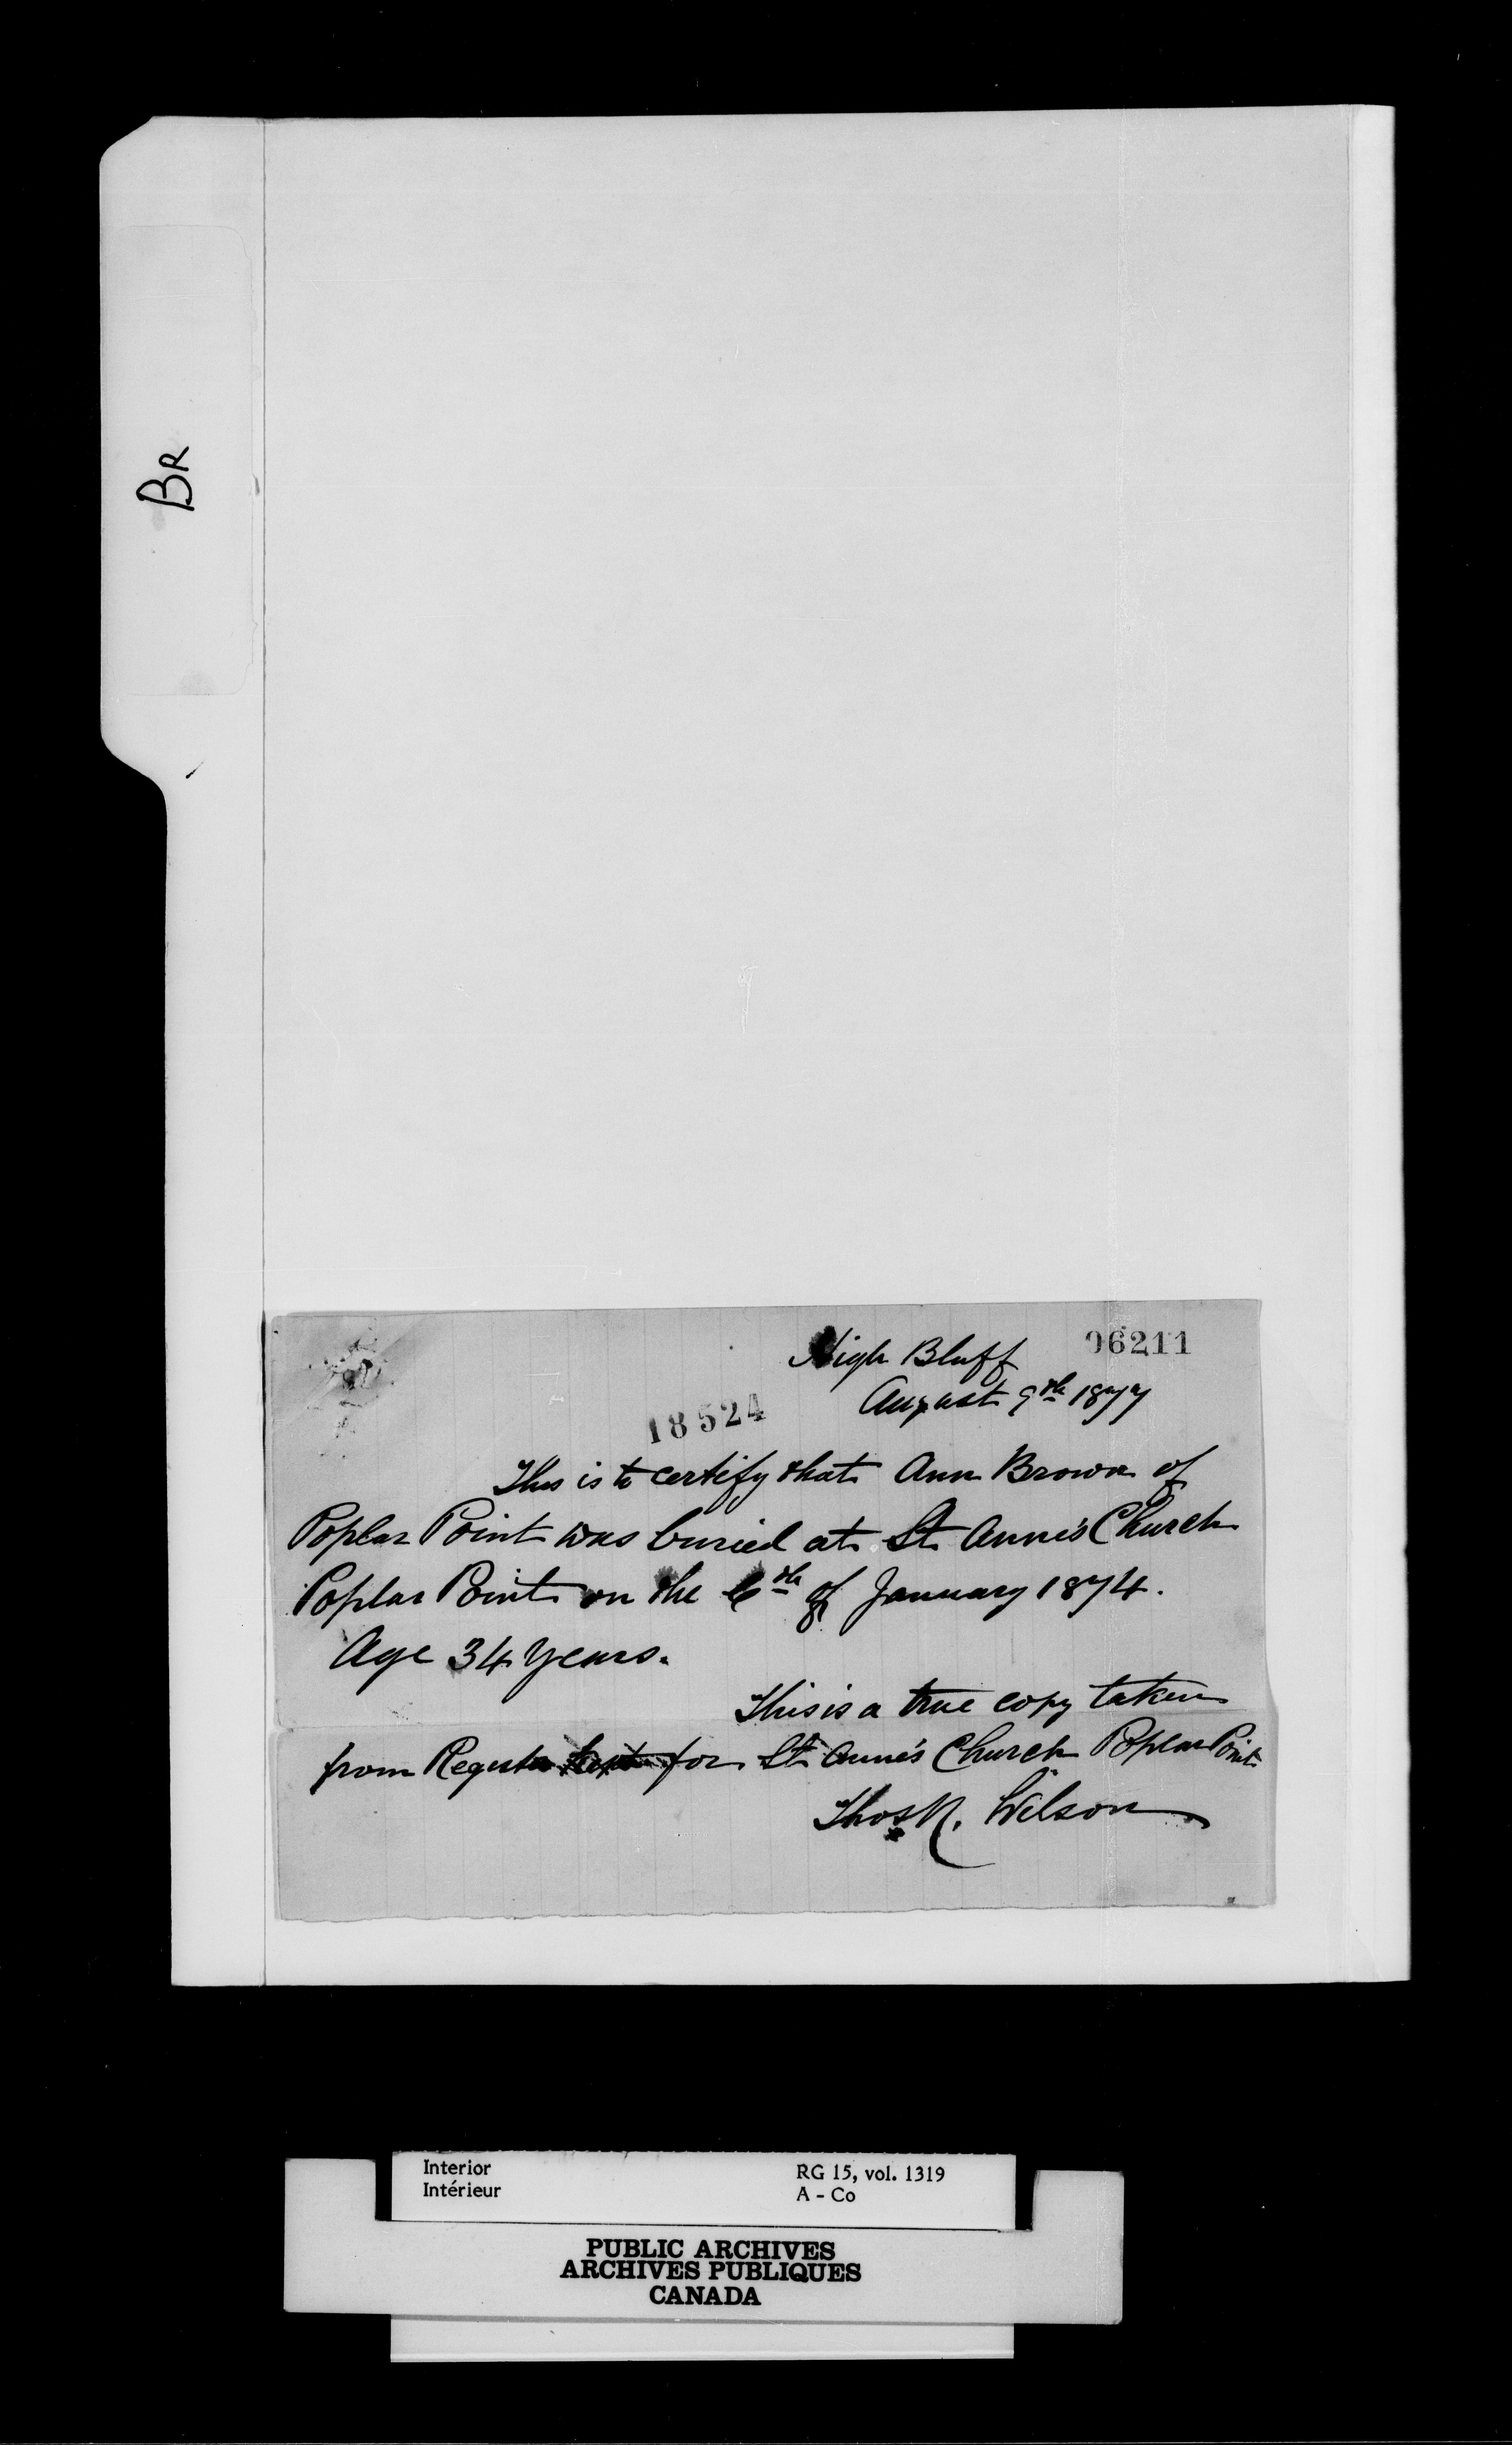 BR
High Bluff
06211
August 9th 1877
18524
This is to certify that Ann Brown of
Poplar Point was buried at St Anne's Church
Poplar Point on the 6th of January 1874.
Age 34 years.
This is a true copy taken
from Register kept for St Anne's Church Poplar Point
Thos N. Wilson
Interior
Intérieur
RG 15, vol. 1319
A - Co
PUBLIC ARCHIVES
ARCHIVES PUBLIQUES
CANADA